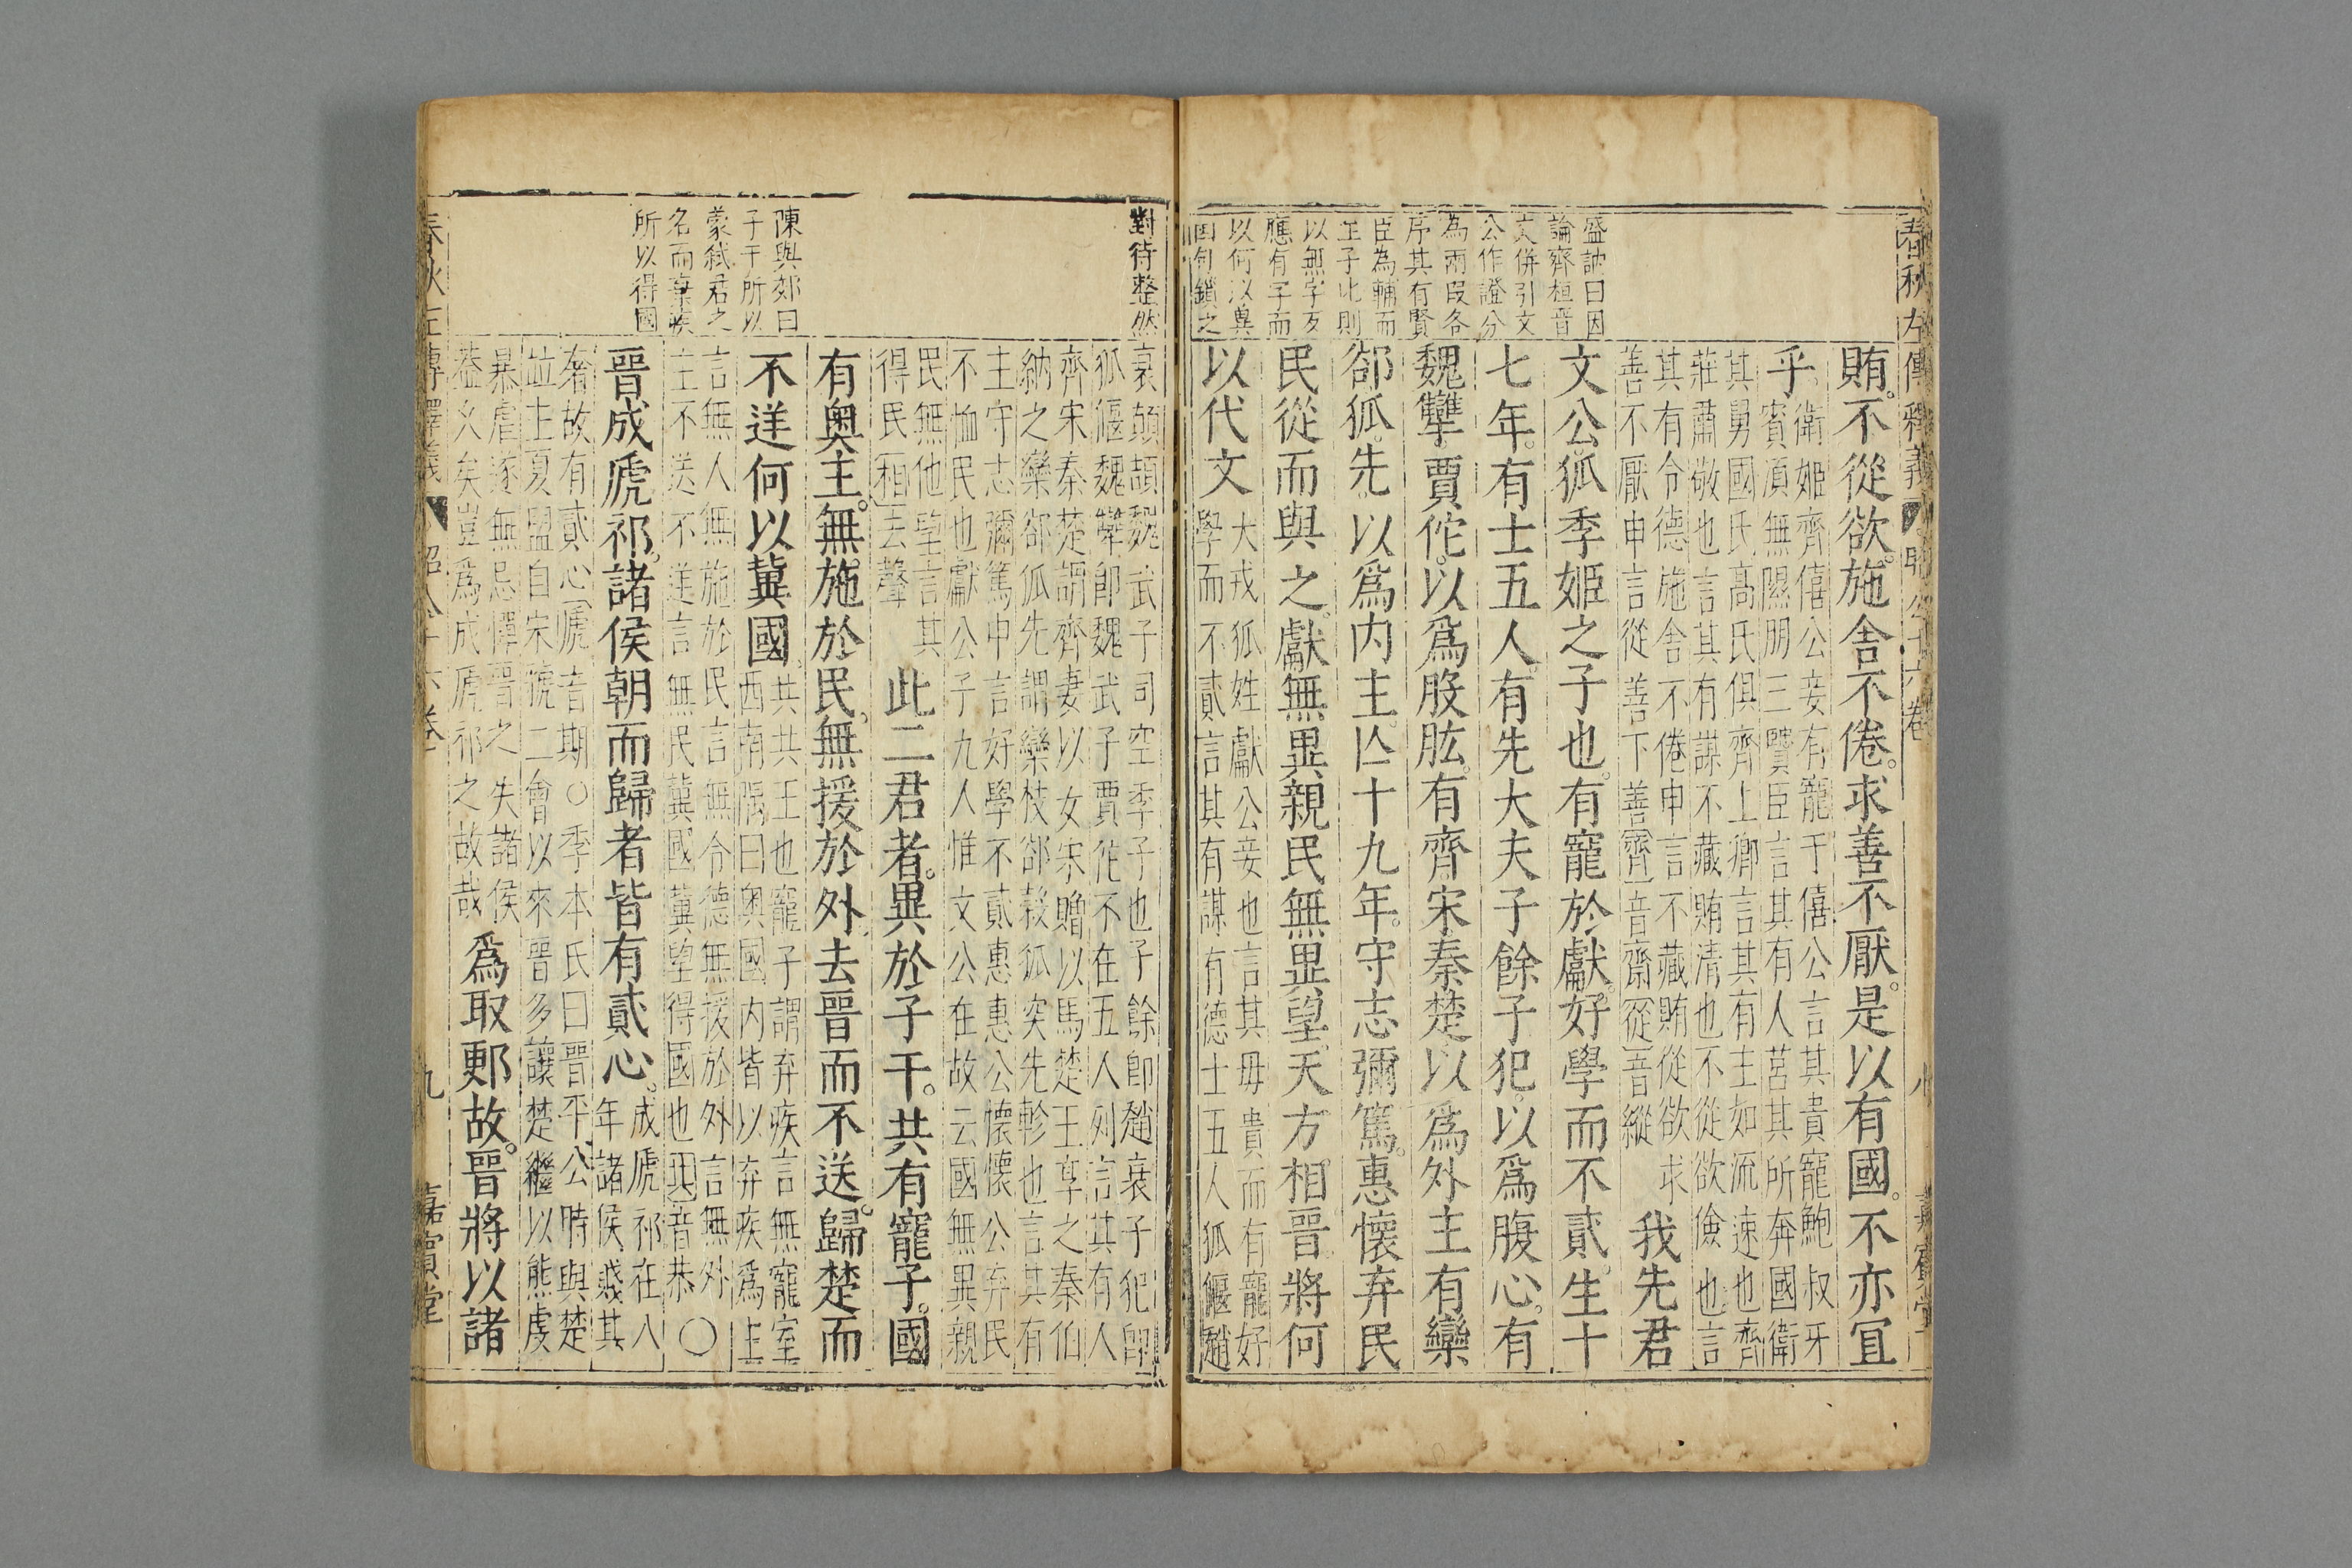 春秋左傳釋義 昭公十六卷 八 嘉賓堂
盛訥曰因
論齊桓晉
文併引文
公作證分
為兩段各
序其有賢
臣為輔而
主子比則
以無字反
應有字而
以何以冀
國句鎖之
賄。不從欲。施舍不倦。求善不厭。是以有國。不亦宜
乎。
衛姬齊僖公妾有寵于僖公言其貴寵鮑叔牙
賓須無隰朋三賢臣言其有人莒其所奔國衛
其舅國氏高氏俱齊上卿言其有主如流速也齊
莊肅敬也言其有謀不藏賄清也不從欲儉也言
其有令德施舍不倦申言不藏賄從欲求
善不厭申言從善下善齊音齋從音縱
我先君
文公。狐季姬之子也。有寵於獻。好學而不貳。生十
七年。有士五人。有先大夫子餘子犯。以爲腹心。有
魏犫。賈佗。以爲股肱。有齊宋秦楚。以爲外主。有欒
郤狐。先。以爲内主。亾十九年。守志彌篤。惠懷弃民
民從而與之。獻無異親。民無異望。天方相晉。將何
以代文
大戎狐姓獻公妾也言其母貴而有寵好
學而不貳言其有謀有德士五人狐偃趙
對待整然
陳與郊曰
子干所以
蒙弑君之
名而棄疾
所以得國
衰顛頡魏武子司空季子也子餘卽趙衰子犯卽
狐偃魏犫卽魏武子賈佗不在五人列言其有人
齊宋秦楚謂齊妻以女宋贈以馬楚王享之秦伯
納之欒郤狐先謂欒枝郤縠狐突先軫也言其有
主守志彌篤申言好學不貳惠惠公懷懷公弃民
不恤民也獻公子九人惟文公在故云國無異親
民無他望言其
得民相去聲
此二君者。異於子干。共有寵子。國
有奥主。無施於民。無援於外。去晉而不送。歸楚而
不逆何以冀國。
共共王也寵子謂弃疾言無寵室
西南隅曰奥國内皆以弃疾爲主
言無人無施於民言無令德無援於外言無外
主不送不逆言無民冀國冀望得國也共音恭
〇
晉成虒祁。諸侯朝而歸者皆有貳心。
成虒祁在八
年諸侯惑其
奢故有貳心虒音期○季本氏曰晉平公時與楚
竝主夏盟自宋虢二會以來晉多讓楚繼以熊虔
暴虐遂無忌憚晉之失諸侯
葢久矣豈爲成虒祁之故哉
爲取郠故。晉將以諸
春秋左傳釋義 昭公十六卷 九 嘉賓堂